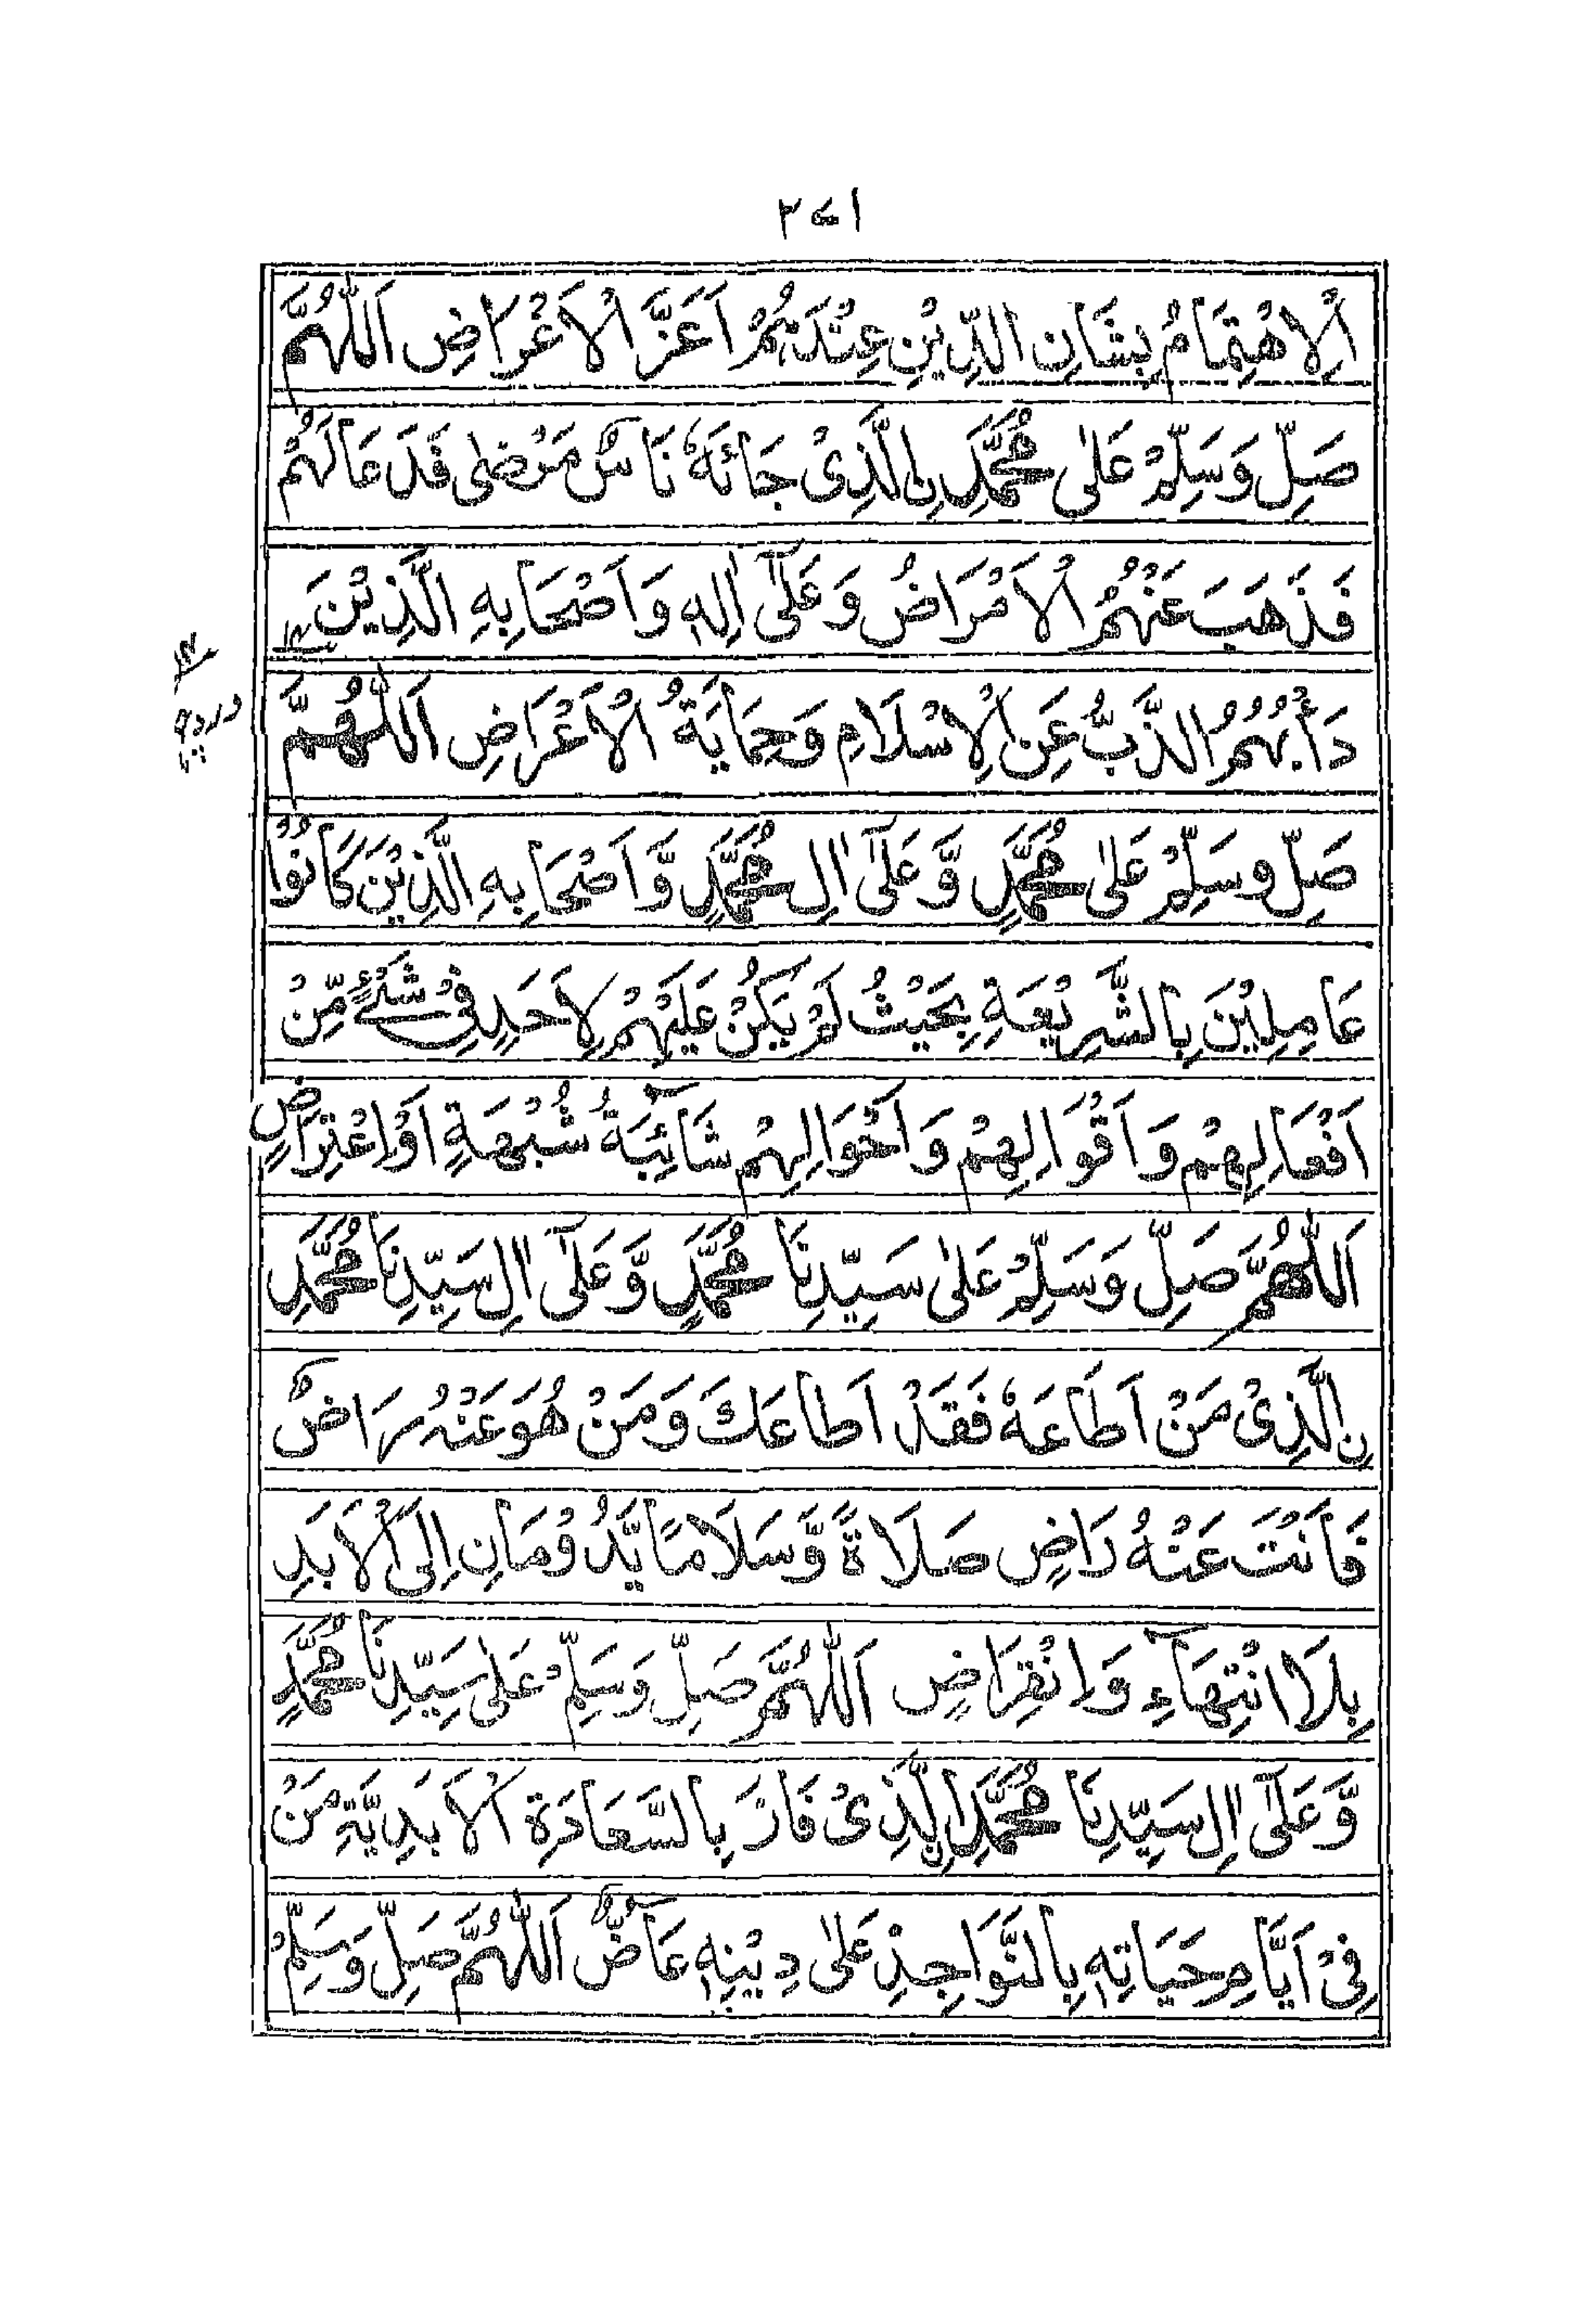 ۲۷۱
اَلْاِهْتِمَامُ بِشَانِ الدِّيْنِ عِنْدَهُمْ اَعَزَّ الْاَغْرَاضِ اَللّٰهُمَّ
صَلِّ وَسَلِّمْ عَلٰى مُحَمَّدِ نِالَّذِىْ جَائَهٗ نَاسٌ مَرْضٰى فَدَعَالَهُمْ
فَذَهَبَ عَنْهُمُ الْاَمْرَاضُ وَعَلٰٓى اٰلِهٖ وَاَصْحَابِهِ الَّذِيْنَ
دَأْبُهُمُ الذَّبُّ عَنِ الْاِسْلَامِ وَحِمَايَةُ الْاَعْرَاضِ اَللّٰهُمَّ
صَلِّ وسَلِّمْ عَلٰى مُحَمَّدٍ وَّعَلٰٓى اٰلِ مُحَمَّدٍ وَّاَصْحَابِهِ الَّذِيْنَ كَانُوْا
عَامِلِيْنَ بِالشَّرِيْعَةِ بِحَيْثُ لَمْ يَكُنْ عَلَيْهِمْ لِاَحَدٍ فِىْ شَىْءٍ مِّنْ
اَفْعَالِهِمْ وَاَقْوَالِهِمْ وَاَحْوَالِهِمْ شَآئِبَةُ شُبْهَةٍ اَوْاِعْتِرَاضٍ
اَللّٰهُمَّ صَلِّ وَسَلِّمْ عَلٰى سَيِّدِنَا مُحَمَّدٍ وَّعَلٰٓى اٰلِ سَيِّدِنَا مُحَمَّدِ
نِ الَّذِىْ مَنْ اَطَاعَهٗ فَقَدْ اَطاعَكَ وَمَنْ هُوَعَنْهُ رَاضٌ
فَاَنْتَ عَنْهُ رَاضٍ صَلَاةً وَّسَلَامًا يَّدُوْمَانِ اِلَى الْاَبَدِ
بِلَا انْتِهَآءِ وَاِنْقِرَاضٍ اَللّٰهُمَّ صَلِّ وَسَلِّمْ عَلٰى سَيِّدِنَا مُحَمَّدٍ
وَّعَلٰٓى اٰلِ سَيِّدِنَا مُحَمَّدِ نِالَّذِىْ فَازَ بِالسَّعَادَةِ الْاَبَدِيَّةِ مَنْ
فِىْ اَيَّامِ حَيَاتِهٖ بِالنَّوَاجِذِ عَلٰى دِيْنِهٖ عَاضٌّ اَللّٰهُمَّ صَلِّ وَسَلِّمْ